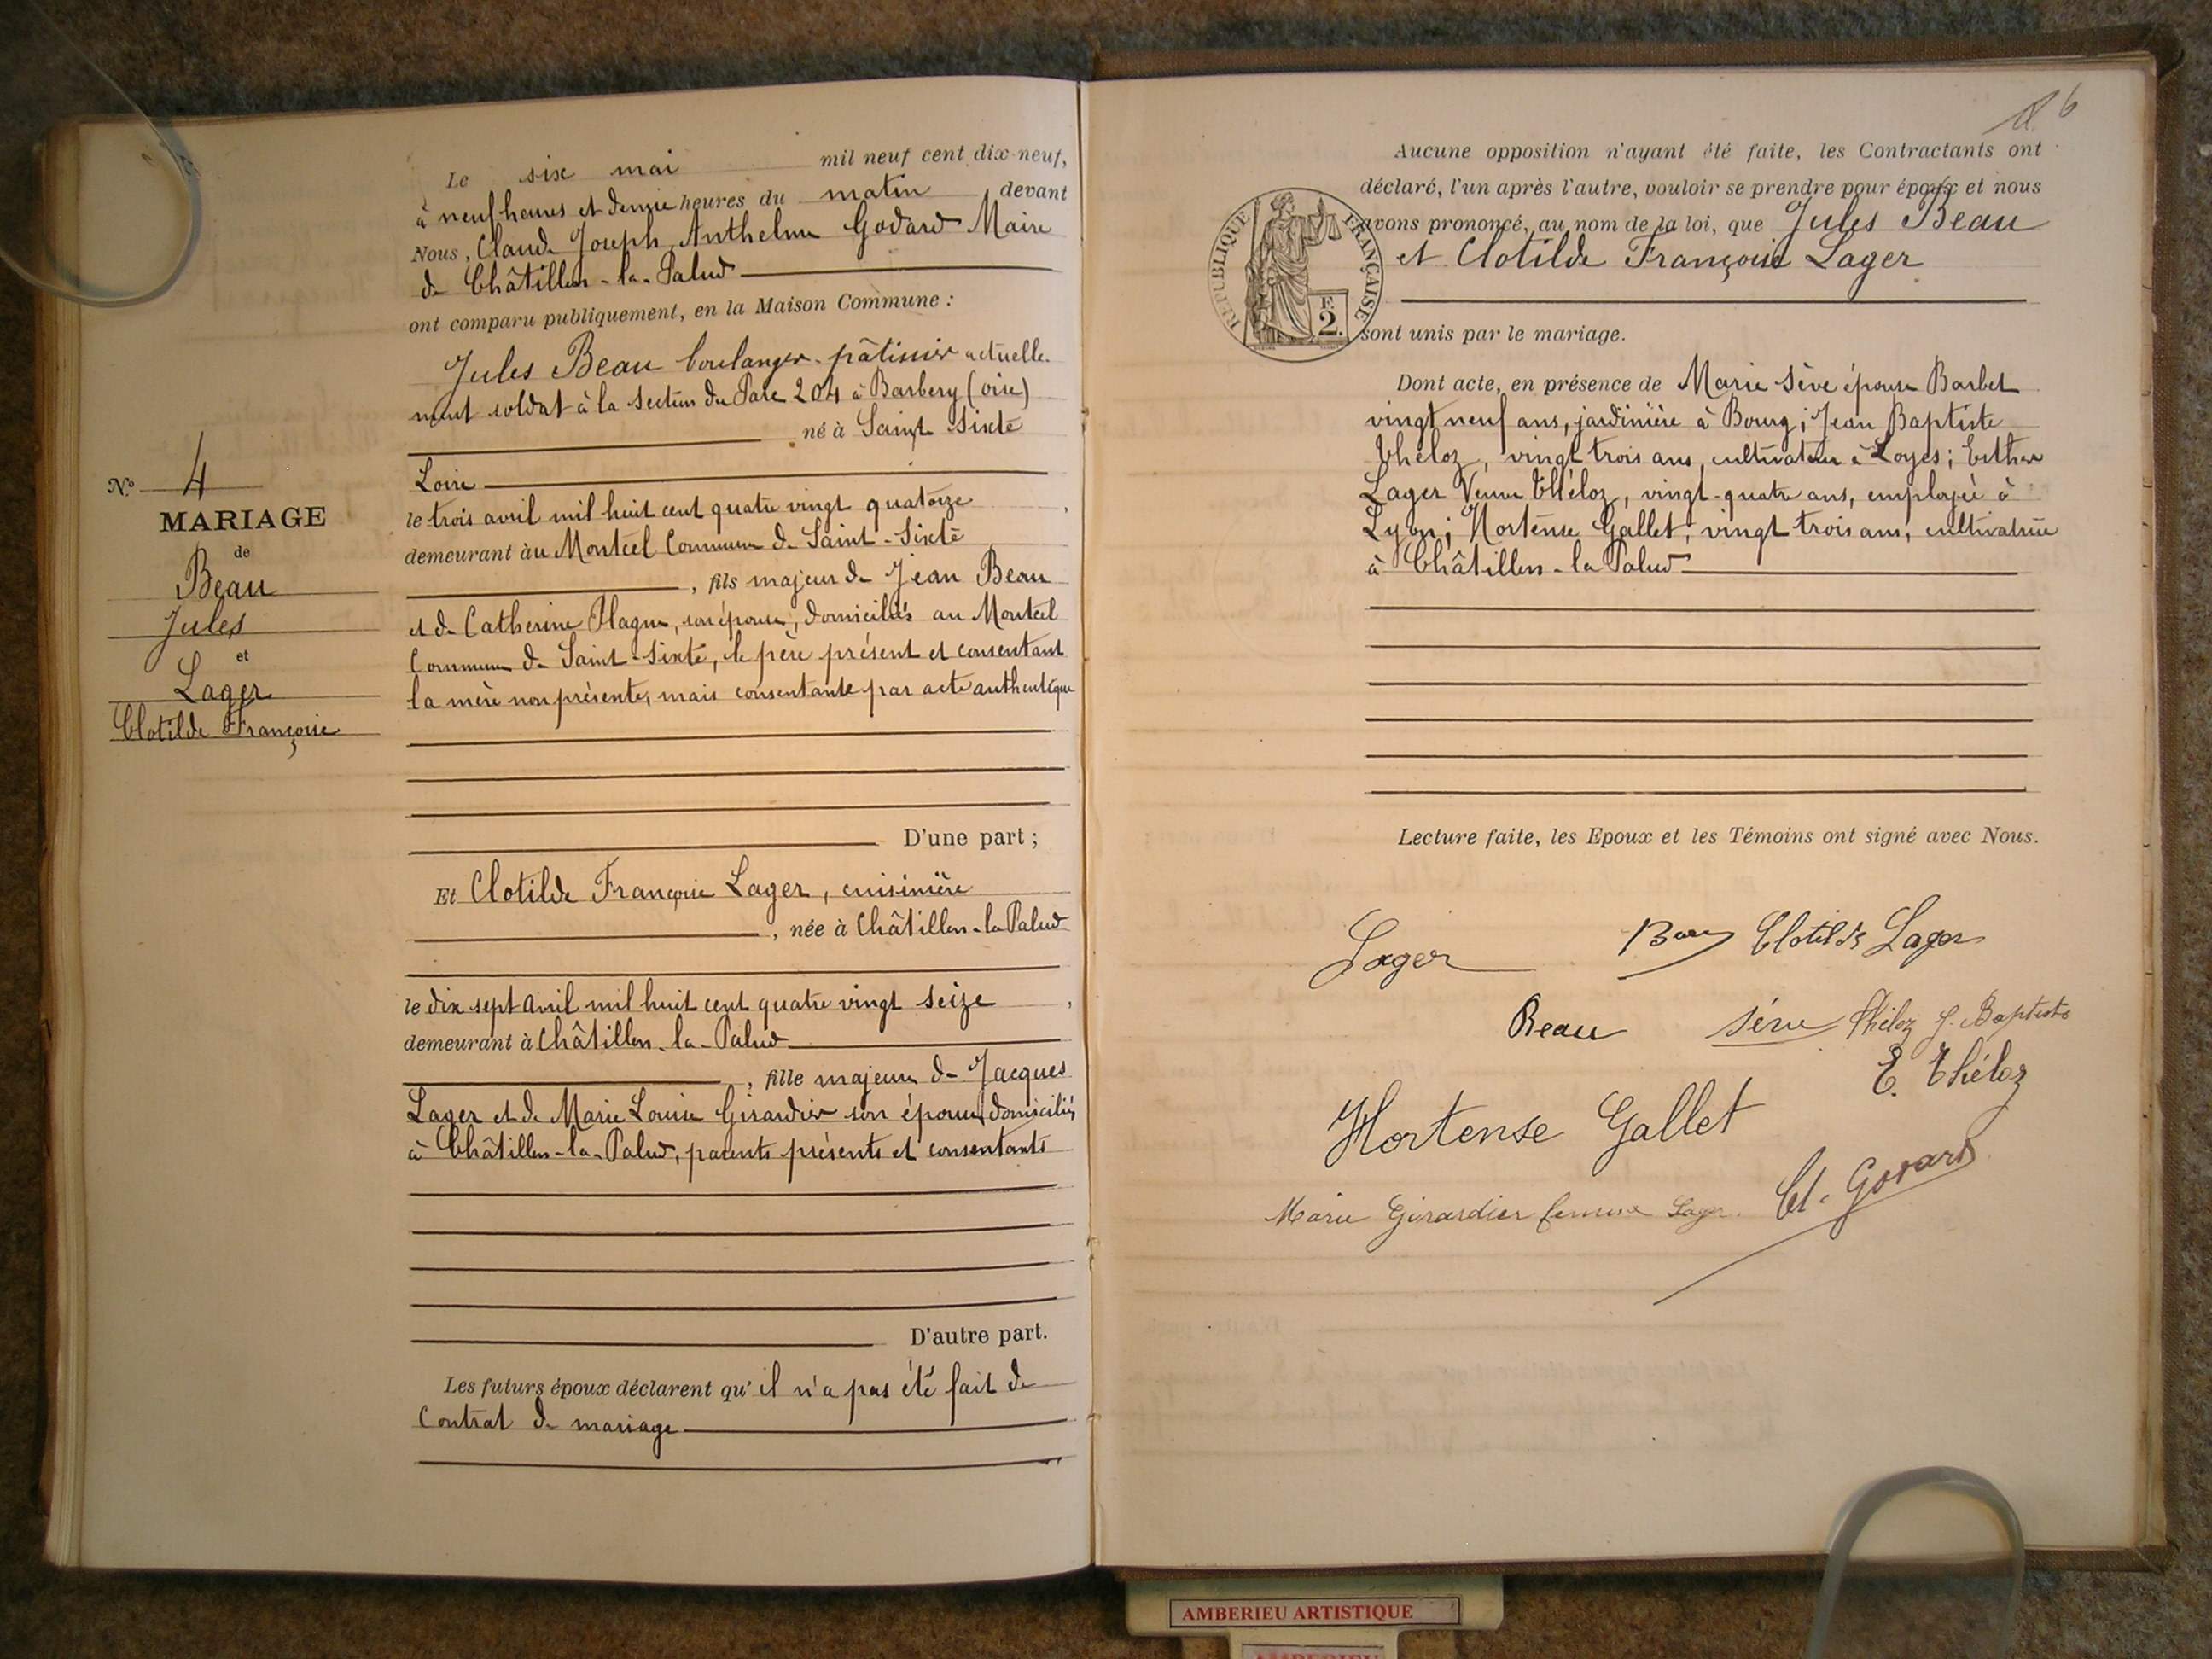 N.º 4
MARIAGE
de
Beau
Jules
et
Lager
Clotilde Françoise
Le six mai mil neuf cent dix-neuf,
à neuf heures et demie heures du matin devant
Nous, Claude Joseph Anthelme Godard Maire
de Châtillon-la-Palud
ont comparu publiquement, en la Maison Commune :
Jules Beau boulanger-pâtissier actuelle-
ment soldat à la section du Parc 204 à Barbery (oise)
né à Saint Sixte
Loire
le trois avril mil huit cent quatre vingt quatorze
demeurant au Montcel Commune de Saint-Sixte
, fils majeur de Jean Beau
et de Catherine, son épouse, domiciliés au Montcel
Commune de Saint-Sixte, le père présent et consentant
la mère non présente, mais consentante par acte authentique
D'une part ;
Et Clotilde Françoise Lager, cuisinière
, née à Châtillon-la Palud
le dix sept avril mil huit cent quatre vingt seize ,
demeurant à Châtillon-la-Palud
, fille majeure de Jacques
Lager et de Marie Louise Girardier son épouse, domiciliés
à Châtillon-la-Palud, parents présents et consentants
D'autre part.
Les futurs époux déclarent qu'il n'a pas été fait de
Contrat de mariage
6
Aucune opposition n'ayant été faite, les Contractants ont
déclaré, l'un après l'autre, vouloir se prendre pour époux et nous
avons prononcé, au nom de la loi, que Jules Beau
et Clotilde Françoise Lager
sont unis par le mariage.
REPUBLIQUE FRANÇAISE
F.
2.
Dont acte, en présence de Marie Sève épouse Barbet
vingt neuf ans, jardinière à Bourg ; Jean Baptiste
Théloz, vingt trois ans, cultivateur à Loyes ; Esther
Lager Veuve Théloz, vingt-quatre ans, employée à
Lyon ; Hortense Gallet, vingt trois ans, cultivatrice
à Châtillon-la Palud
Lecture faite, les Epoux et les Témoins ont signé avec Nous.
Lager Clotilde Lager
Beau Sève Théloz J. Baptiste
E. Théloz
Hortense Gallet
Marie Girardier femme Lager Cl. Godard
AMBERIEU ARTISTIQUE
AMBERIEU